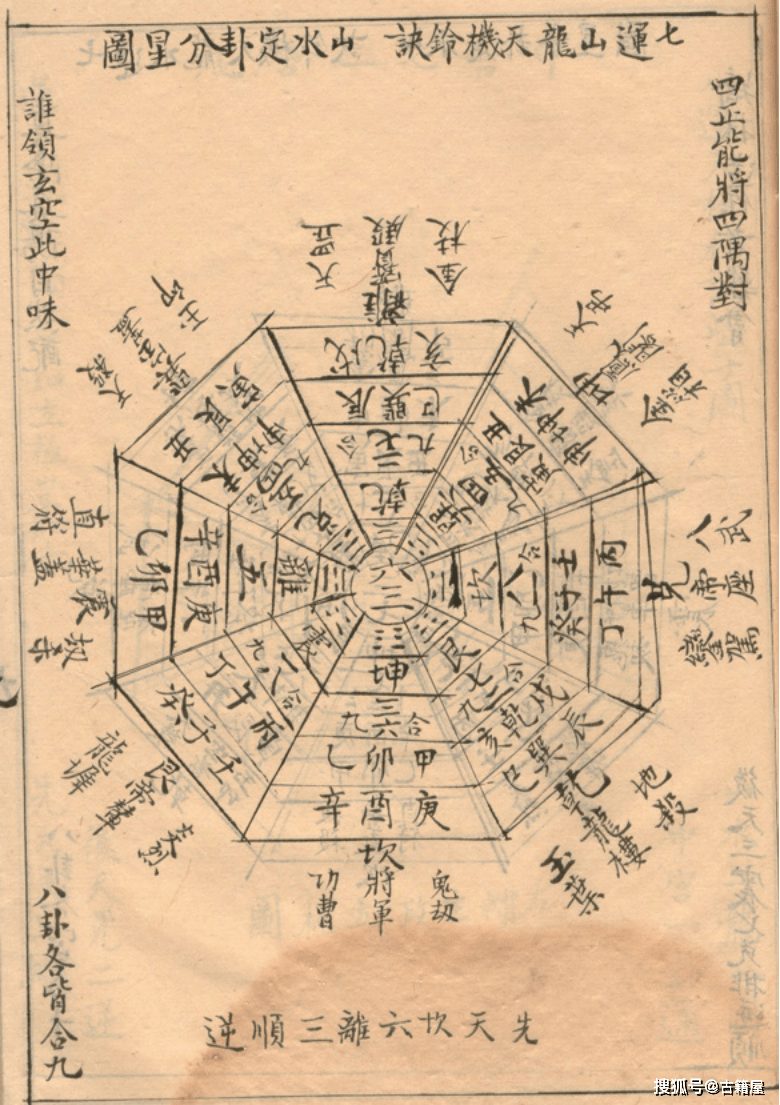 七運山龍天機鈴訣 山水定卦分星圖
四正能將四隅對
誰領玄空此中味
八卦各皆合九
先天坎六離三順逆
天罡
寶殿
金枝
亥乾戌
巳巽辰
九 一 合
乾
未坤申
丑艮寅
武
八座
帝
鑾駕
兌
丙午丁
壬子癸
合八一九
坎
地殺
龍樓
玉葉
乾
辰巽巳
戌乾亥
合二七九
艮
鬼劫
將軍
功曹
坎
庚酉辛
甲卯乙
合三六九
坤
龍墀
帝輦
艮
壬子癸
丙午丁
合八一九
震
直符
華蓋
震
劫
甲卯乙
庚酉辛
五
離
丑艮寅
未坤申
六三
搜狐号@古籍屋